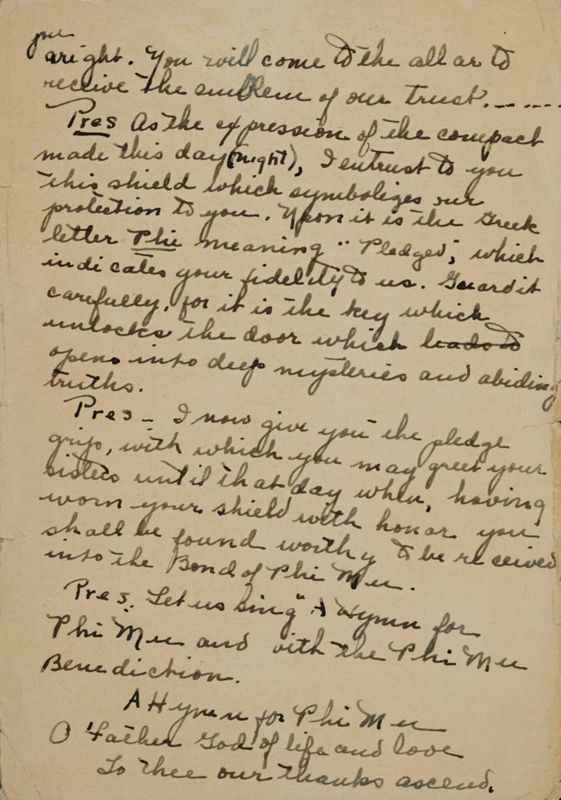 you
aright. You will come to the altar to
receive the emblem of our trust. - - - -
Pres As the expression of the compact
made this day (night), I entrust to you
this shield which symbolizes our
protection to you. Upon it is the Greek
letter Phi meaning "Pledged", which
indicates your fidelity to us. Guard it
carefully, for it is the key which
unlocks the door which leads to
opens into deep mysteries and abiding
truths.
Pres - I now give you the pledge
grip, with which you may greet your
sisters until that day when, having
worn your shield with honor you
shall be found worthy to be received
into the Bond of Phi Mu.
Pres. Let us sing "A Hymn for
Phi Mu and with the Phi Mu
Benediction.
A Hymn for Phi Mu
O Father God of life and love
To Thee our thanks ascend.